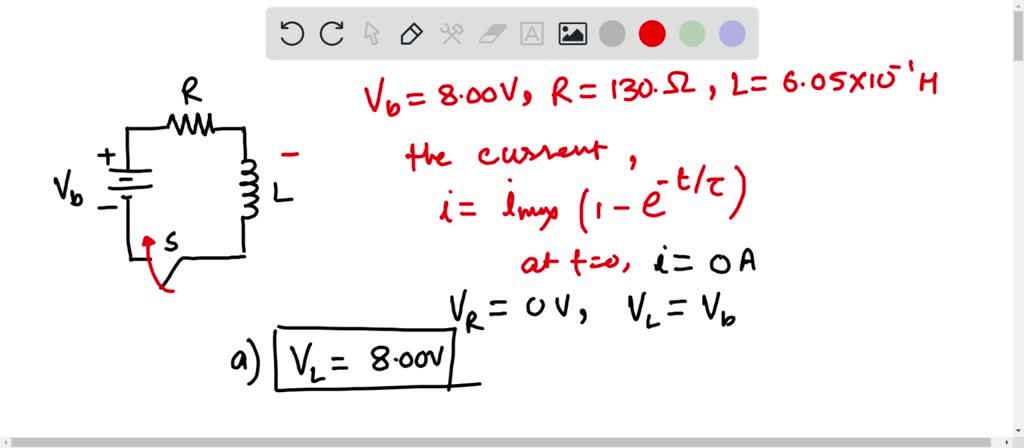 V_b = 8.00V, R = 130.Ω, L = 6.05×10⁻¹ H
R
+
V_b
−
−
L
S
the current,
i = i_max (1 − e^{−t/τ})
at t=0, i = 0 A
V_R = 0 V, V_L = V_b
a) V_L = 8.00V